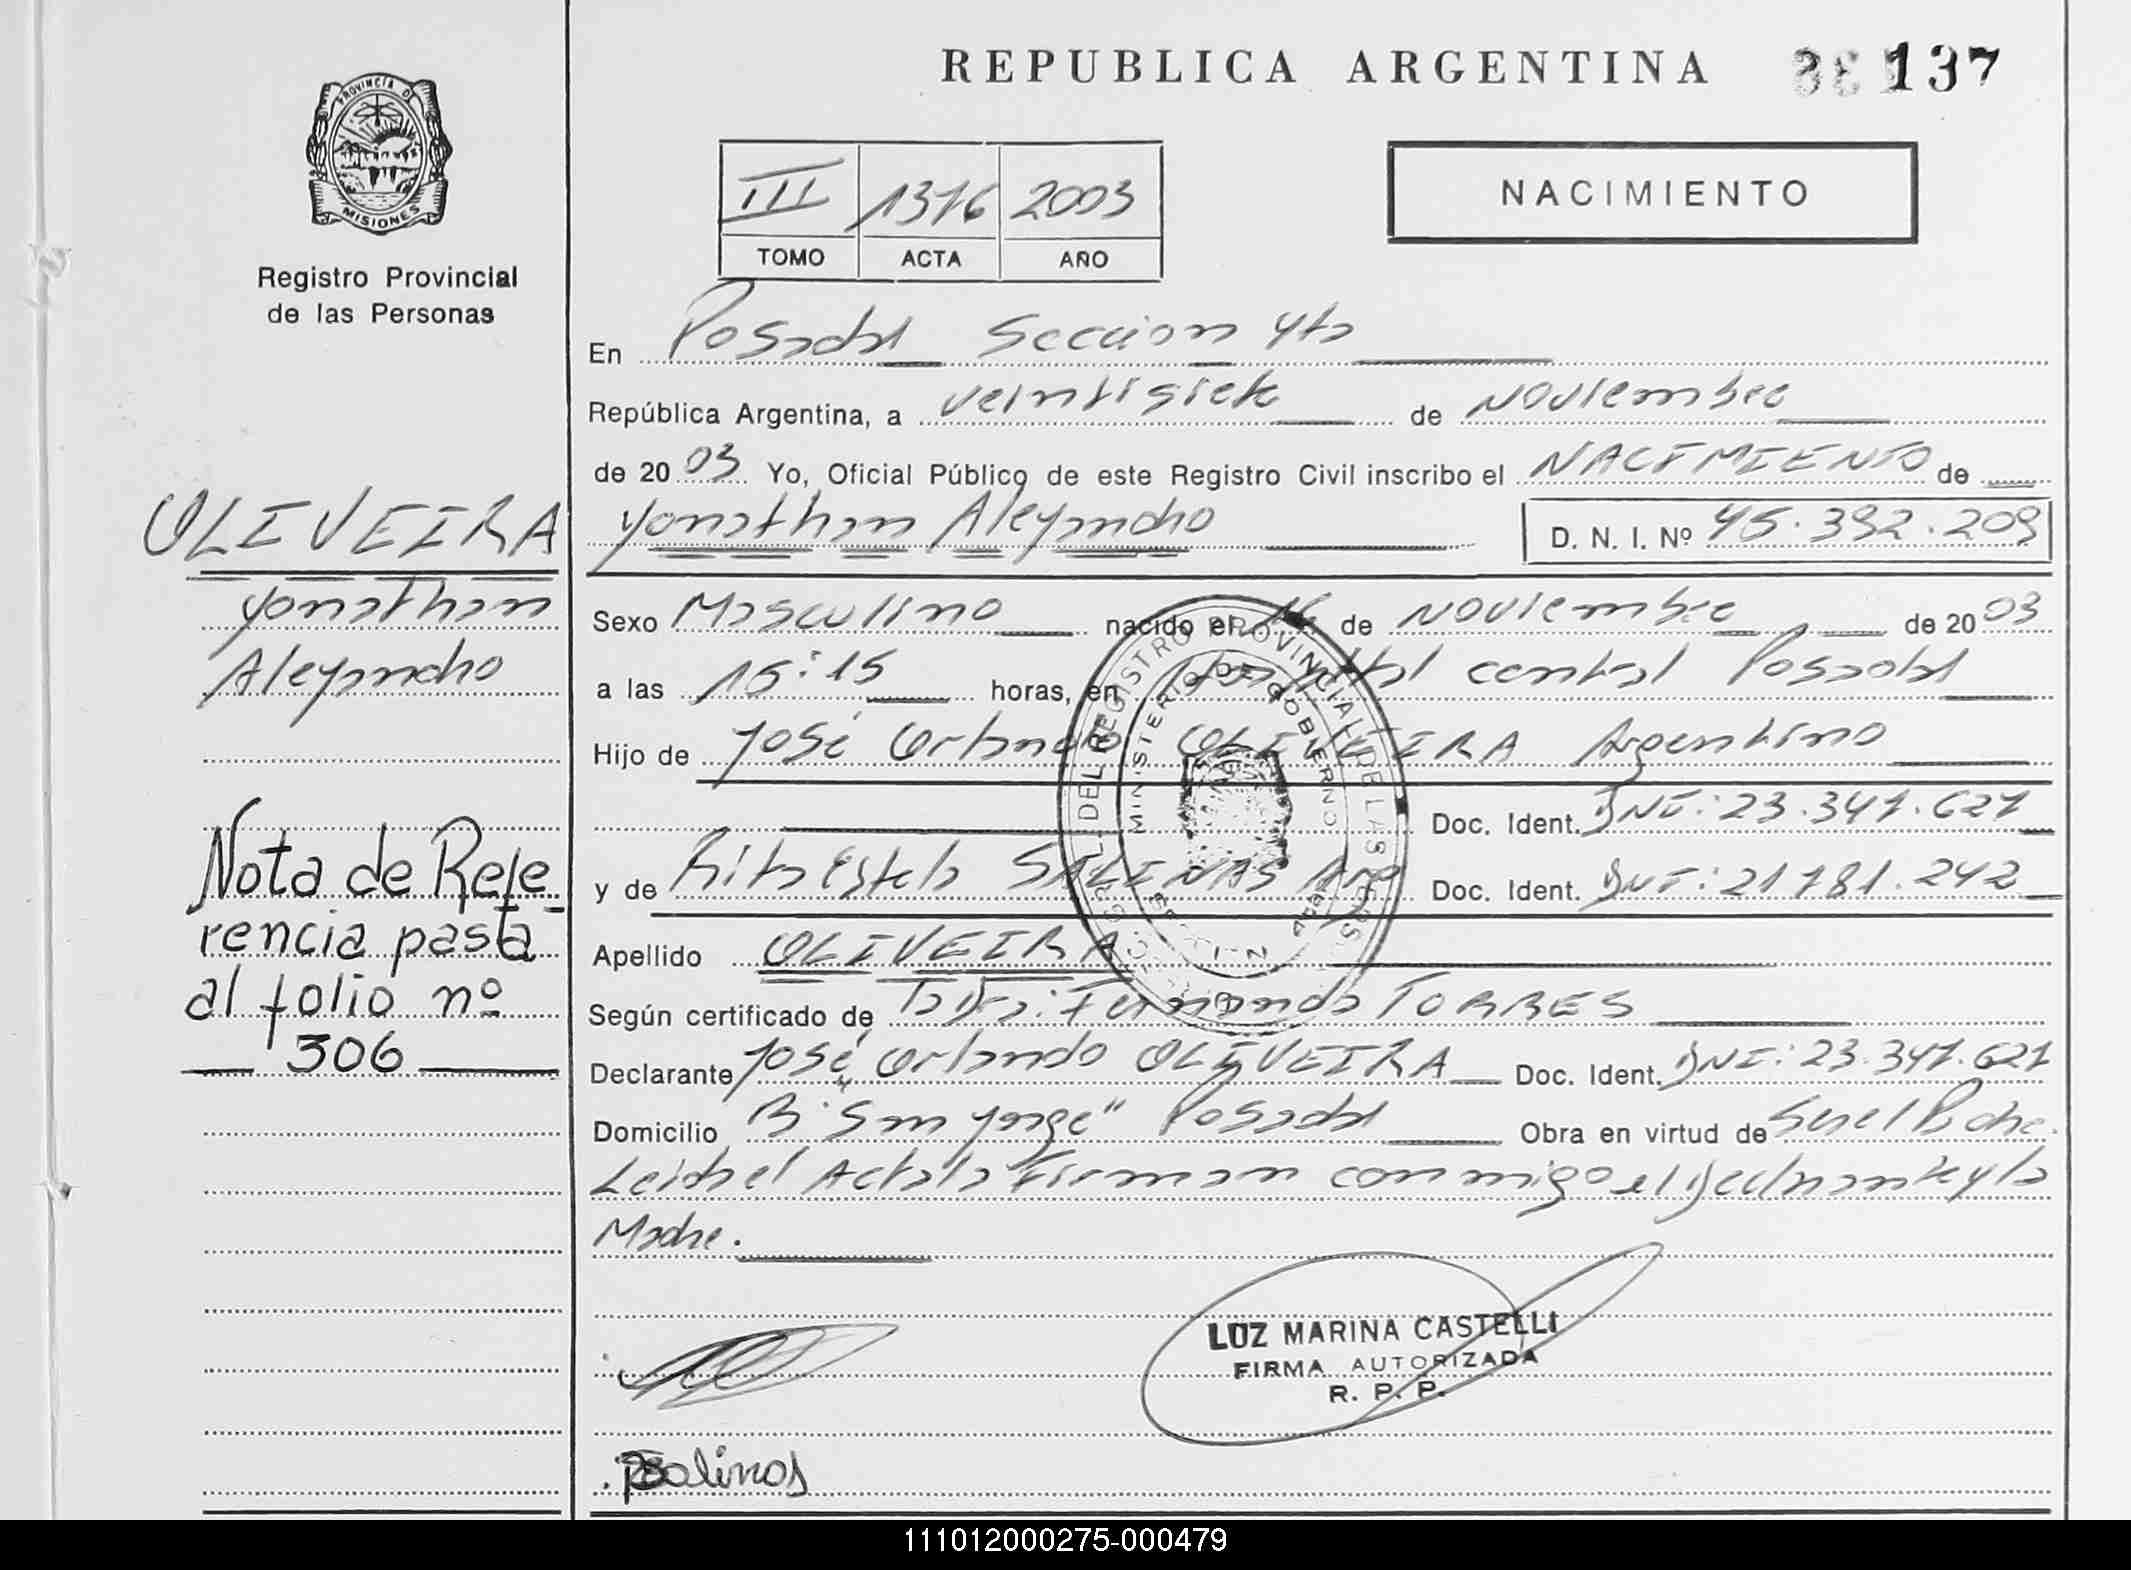 REPUBLICA ARGENTINA 137
PROVINCIA DE
MISIONES
Registro Provincial
de las Personas
III 1376 2003
TOMO ACTA AÑO
NACIMIENTO
En Posadas Seccion 4ta
República Argentina, a veintisiete de Noviembre
de 2003 Yo, Oficial Público de este Registro Civil inscribo el NACIMIENTO de
Yonathan Alejandro D. N. I. Nº 45.392.209
OLIVEIRA
Yonathan
Alejandro
Sexo Masculino nacido el 16 de Noviembre de 2003
a las 15:15 horas, en Hospital central Posadas
Hijo de José Orlando OLIVEIRA Argentino
Doc. Ident. DNI: 23.347.627
y de Rita Estela SALINAS Arg Doc. Ident. DNI: 21.781.242
Apellido OLIVEIRA
Según certificado de la Dra: Fernanda TORRES
Declarante José Orlando OLIVEIRA Doc. Ident. DNI: 23.347.627
Domicilio B° "San Jorge" Posadas Obra en virtud de Ser el Padre.
Leida el Acta la Firman conmigo el Declarante y la
Madre.
Nota de Refe-
rencia pasta
al folio nº
306
DEL REGISTRO PROVINCIAL DE LAS PERS
MINISTERIO DE GOBIERNO
LUZ MARINA CASTELLI
FIRMA AUTORIZADA
R. P. P.
Salinas
111012000275-000479